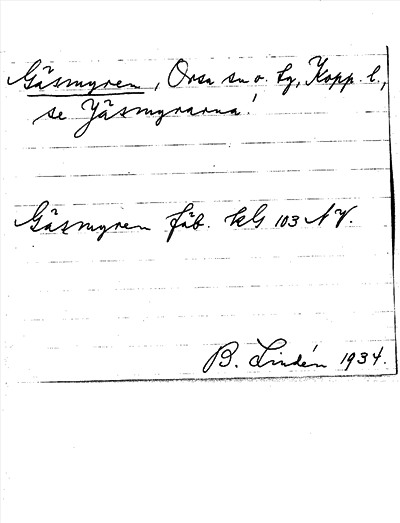 Gäsmyren, Orsa sn o. tg, Kopp. l.,
se Jäsmyrarna!
Gäsmyren fäb. kbl 103 NV.
B. Lindén 1934.